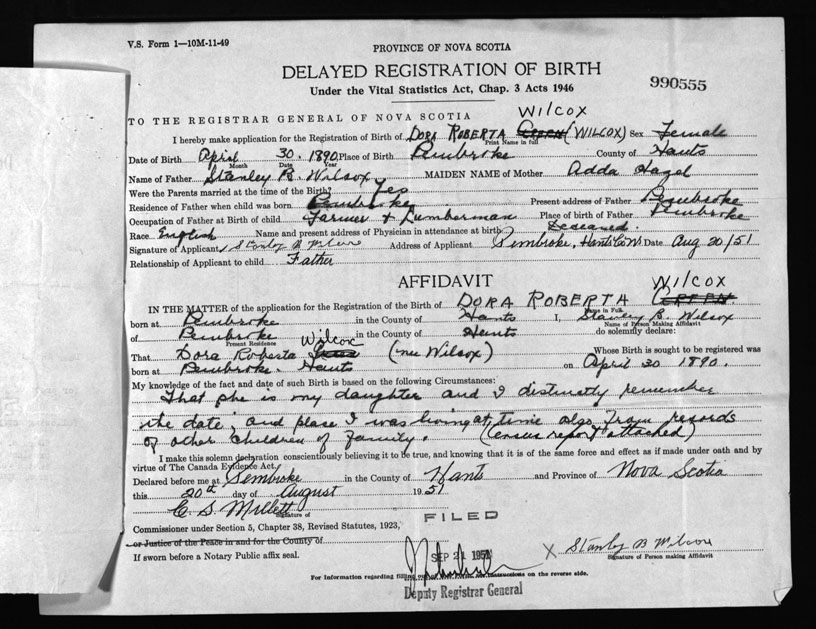 V.S. Form 1—10M-11-49
PROVINCE OF NOVA SCOTIA
DELAYED REGISTRATION OF BIRTH
990555
Under the Vital Statistics Act, Chap. 3 Acts 1946
WILCOX
TO THE REGISTRAR GENERAL OF NOVA SCOTIA
I hereby make application for the Registration of Birth of DORA ROBERTA GREEN (WILCOX) Sex Female
Print Name in full
Date of Birth April 30. 1890. Place of Birth Pembroke County of Hants
Month Date Year
Name of Father Stanley B. Wilcox MAIDEN NAME of Mother Adda Hazel
Were the Parents married at the time of the Birth? Yes
Residence of Father when child was born Pembroke Present address of Father Pembroke
Occupation of Father at Birth of child Farmer & Lumberman Place of birth of Father Pembroke
Race English Name and present address of Physician in attendance at birth Deceased.
Signature of Applicant Stanley B Wilcox Address of Applicant Pembroke, Hants Co N.S. Date Aug 20/51
Relationship of Applicant to child Father
AFFIDAVIT
WILCOX
IN THE MATTER of the application for the Registration of Birth of DORA ROBERTA GREEN
Name in Full
born at Pembroke in the County of Hants I, Stanley B. Wilcox
Name of Person Making Affidavit
of Pembroke in the County of Hants do solemnly declare:
Present Residence
Wilcox
That Dora Roberta Green (nee Wilcox) Whose Birth is sought to be registered was
born at Pembroke. Hants on April 30 1890.
My knowledge of the fact and date of such Birth is based on the following Circumstances:
That she is my daughter and I distinctly remember
the date, and place I was living at, time also from records
of other children of family. (census report attached)
I make this solemn declaration conscientiously believing it to be true, and knowing that it is of the same force and effect as if made under oath and by
virtue of The Canada Evidence Act.
Declared before me at Pembroke in the County of Hants and Province of Nova Scotia
this 20th day of August 1951
C. S. Millett
Signature of
FILED
Commissioner under Section 5, Chapter 38, Revised Statutes, 1923,
or Justice of the Peace in and for the County of
If sworn before a Notary Public affix seal.
SEP 21 1951
X Stanley B Wilcox
Signature of Person making Affidavit
For Information regarding filling out this form see instructions on the reverse side.
Deputy Registrar General